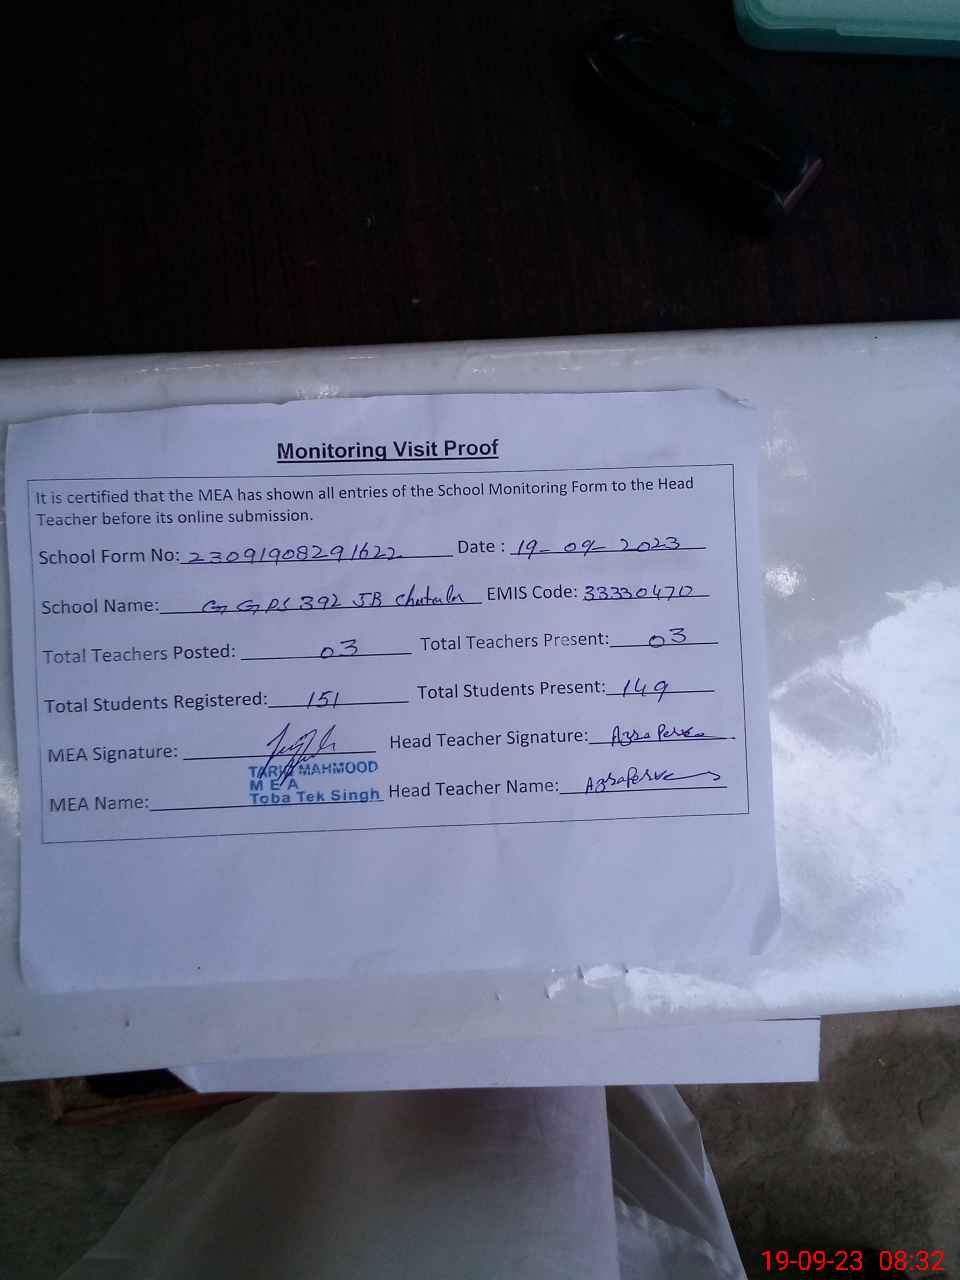 Monitoring Visit Proof
It is certified that the MEA has shown all entries of the School Monitoring Form to the Head
Teacher before its online submission.
School Form No: 23091908291622 Date : 19-09-2023
School Name: GGPS 392 JB EMIS Code: 33330470
Total Teachers Posted: 03 Total Teachers Present: 03
Total Students Registered: 151 Total Students Present: 149
MEA Signature: Head Teacher Signature: Azra
TARIQ MAHMOOD
M E A
Toba Tek Singh
MEA Name: Head Teacher Name: Azra
19-09-23 08:32